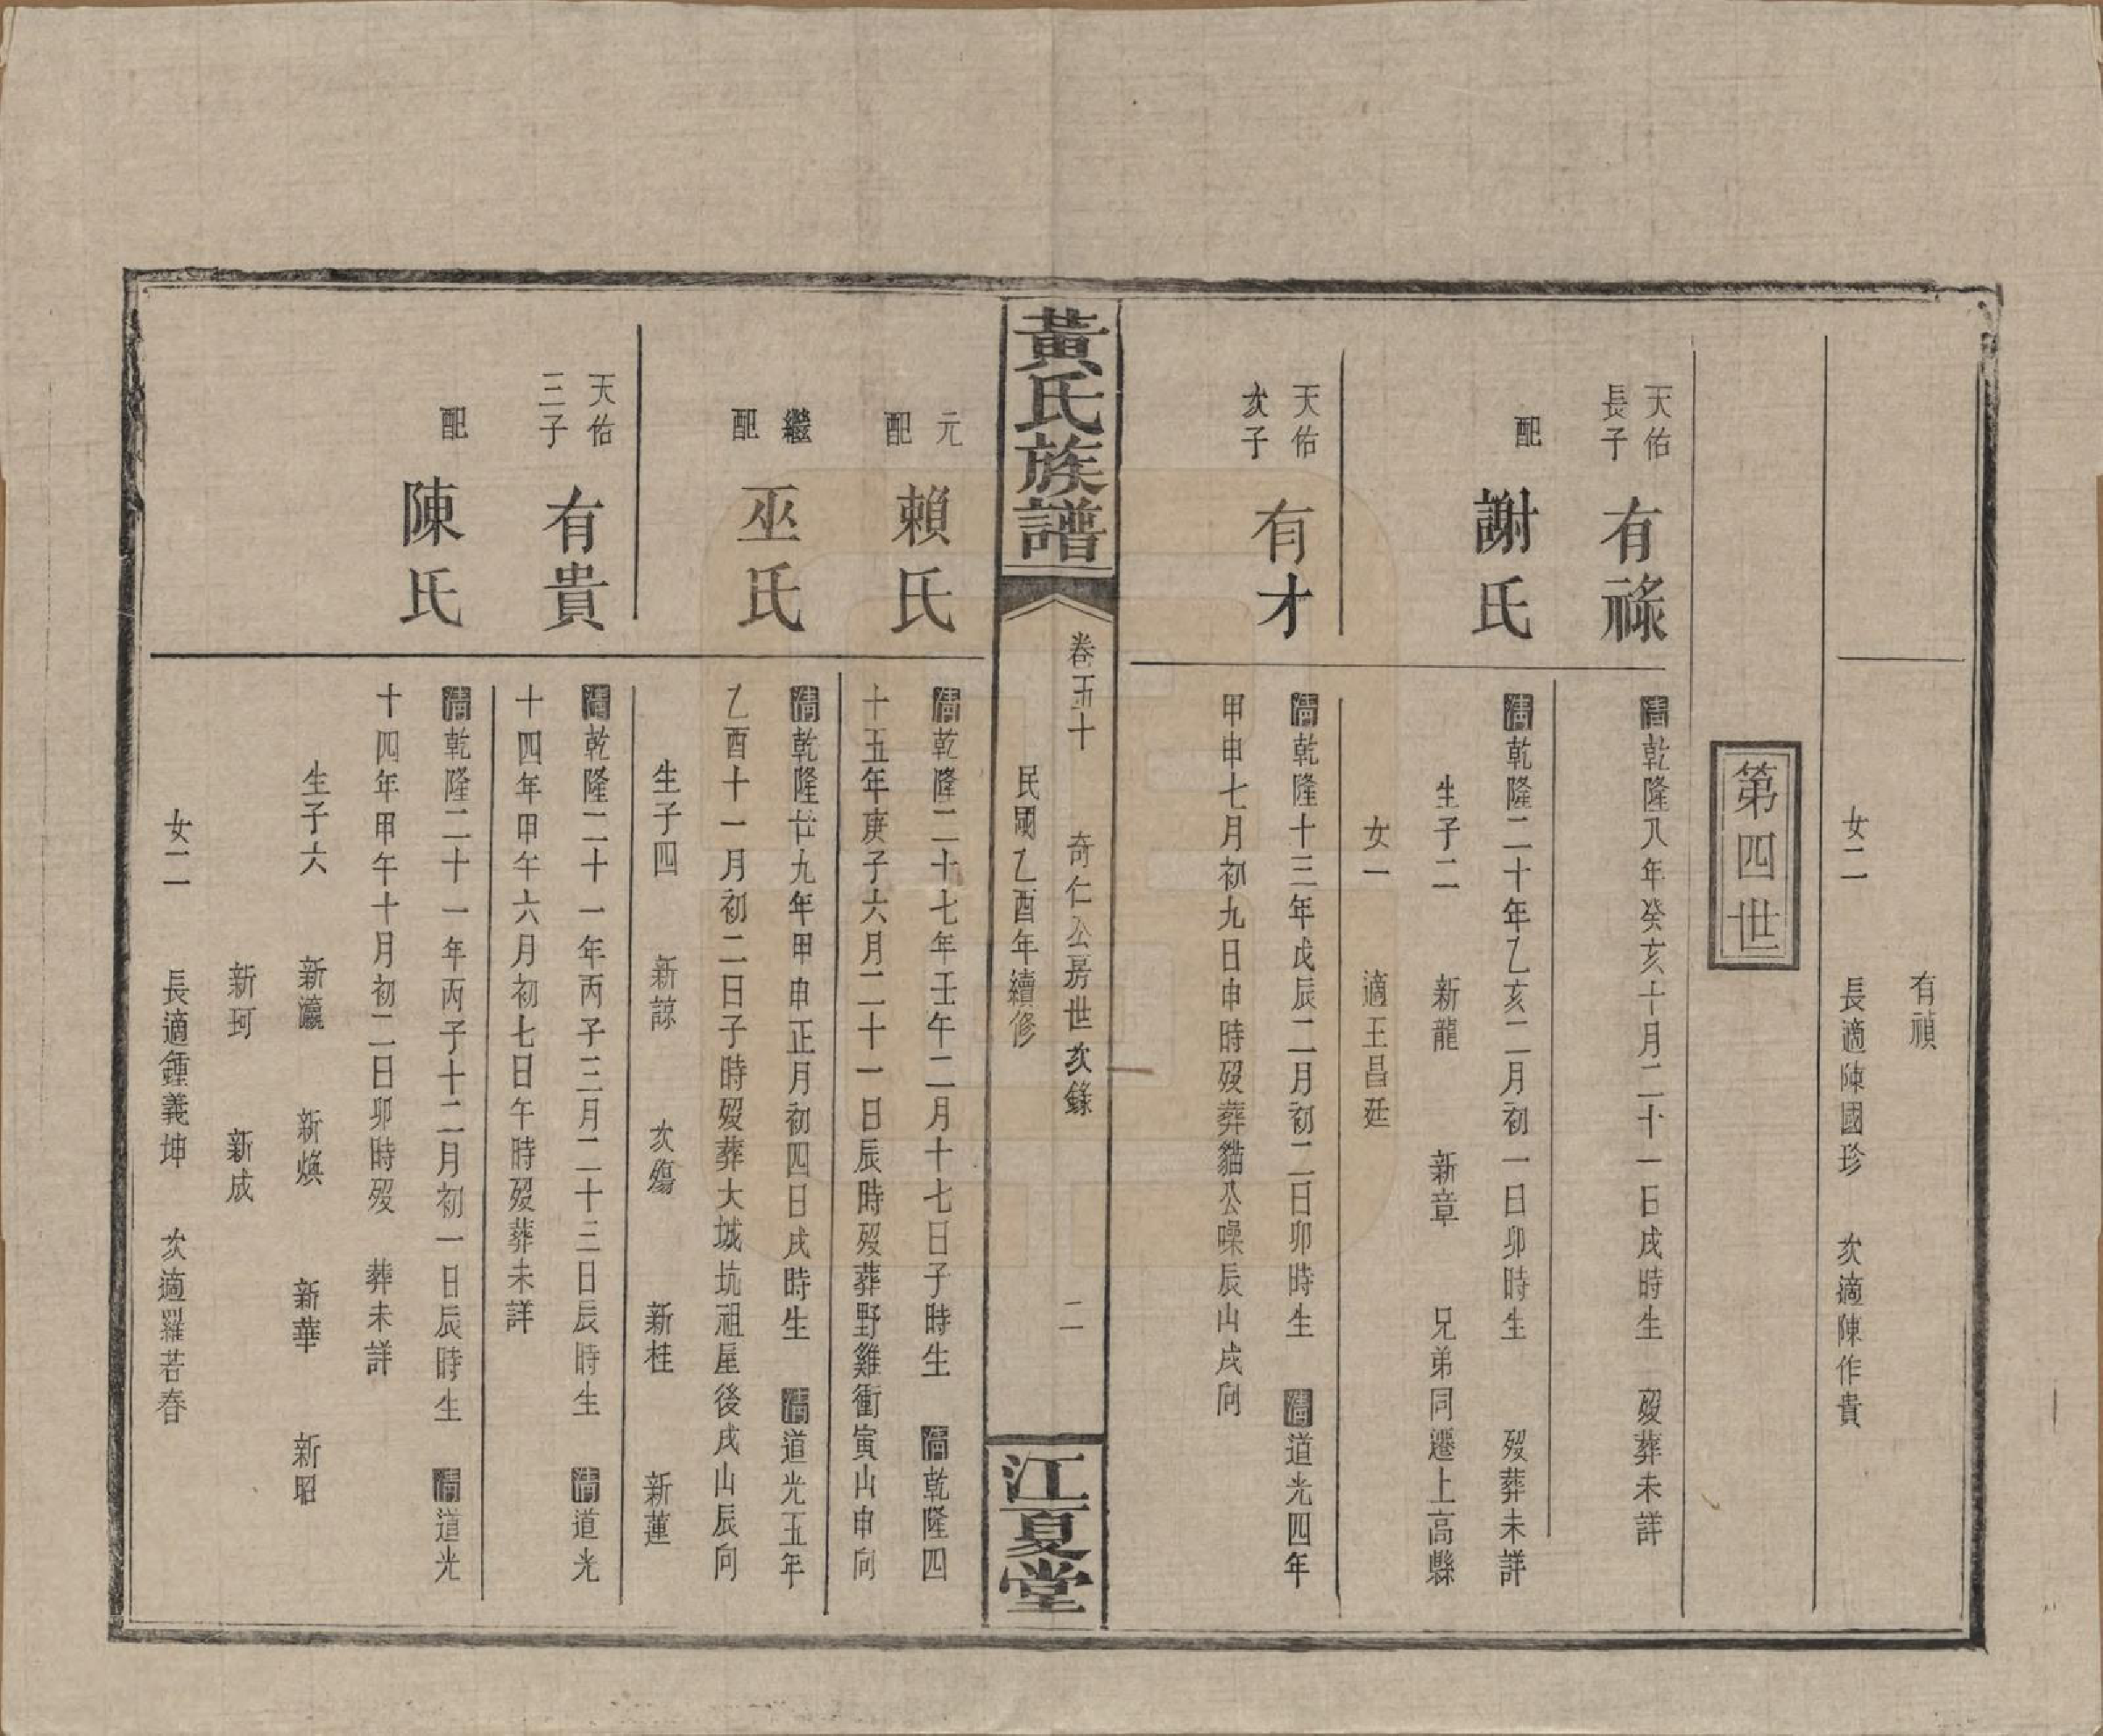 有禎
女二　長適陳國珍　次適陳作貴
第四世
天佑長子　有祿
清乾隆八年癸亥十月二十一日戌時生　歿葬未詳
配　謝氏
清乾隆二十年乙亥二月初一日卯時生　歿葬未詳
生子二　新龍　新章　兄弟同遷上高縣
女一　適王昌廷
天佑次子　有才
清乾隆十三年戊辰二月初二日卯時生　清道光四年
甲申七月初九日申時歿葬貓公㗅辰山戌向
黃氏族譜
卷五十　奇仁公房世次錄　二
民國乙酉年續修
江夏堂
元配　賴氏
清乾隆二十七年壬午二月十七日子時生　清乾隆四
十五年庚子六月二十一日辰時歿葬野雞衝寅山申向
繼配　巫氏
清乾隆廿九年甲申正月初四日戌時生　清道光五年
乙酉十一月初二日子時歿葬大城坑祖屋後戌山辰向
生子四　新諒　次殤　新桂　新蓮
天佑三子　有貴
清乾隆二十一年丙子三月二十三日辰時生　清道光
十四年甲午六月初七日午時歿葬未詳
配　陳氏
清乾隆二十一年丙子十二月初一日辰時生　清道光
十四年甲午十月初二日卯時歿　葬未詳
生子六　新瀛　新煥　新華　新昭
新珂　新成
女二　長適鍾義坤　次適羅若春